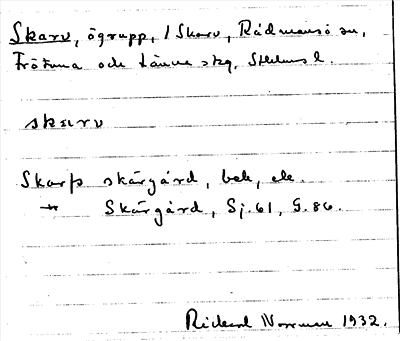 Skarv, ögrupp, / Skarv, Rådmansö sn,
Frötuna och Länna skg, Sthlms l.
skarv
Skarfs skärgård, bek, ek.
" Skärgård, Sj. 61, G. 86.
Rickard Norrman 1932.